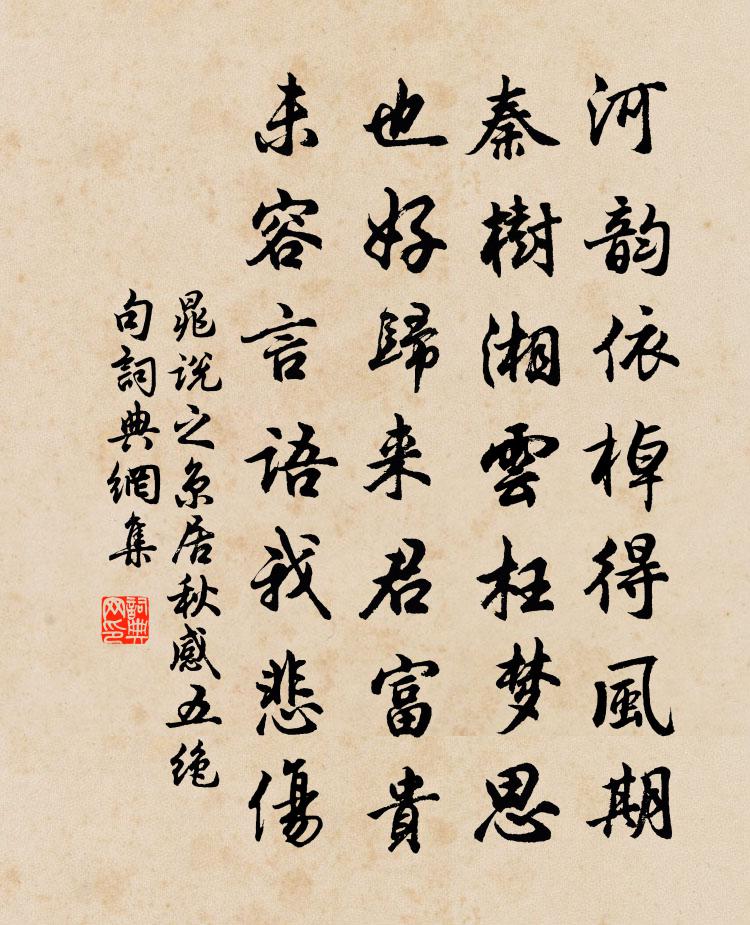 河韵依棹得風期
秦樹湘雲枉梦思
也好歸来君富貴
未容言語我悲傷
晁说之京居秋感五绝
句詞典網集
詞典
网印